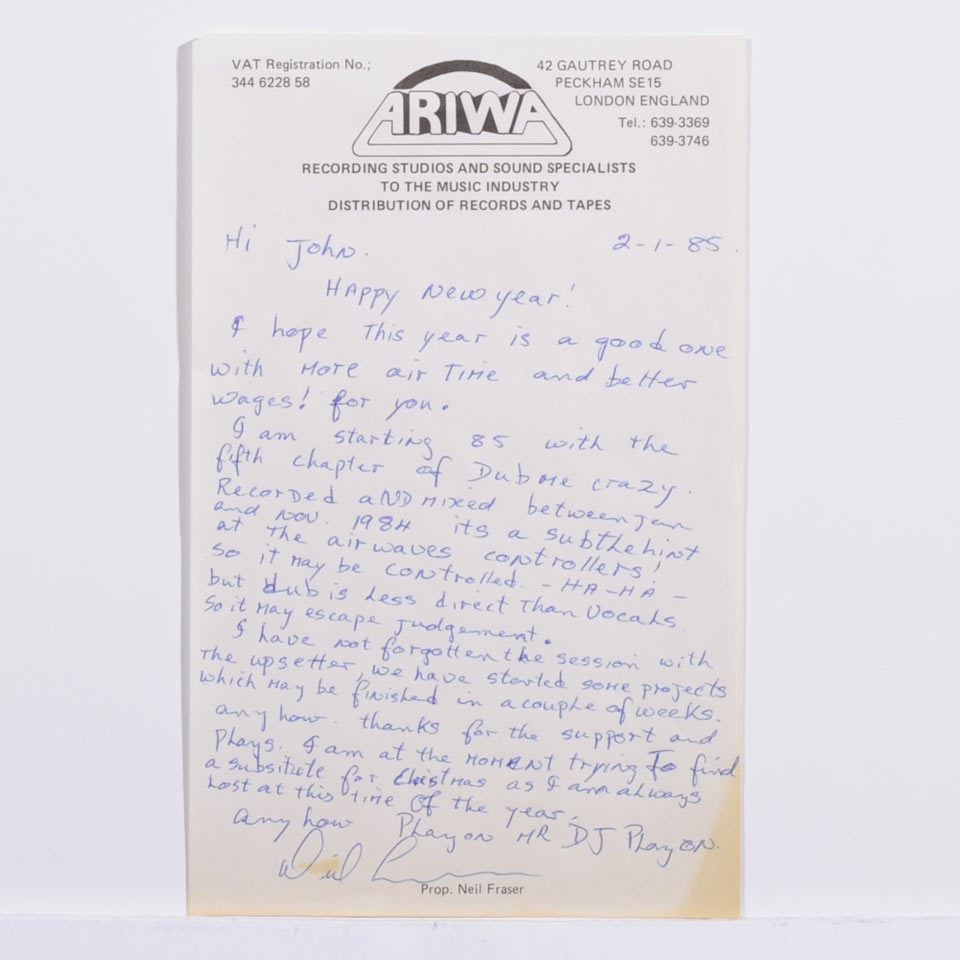 VAT Registration No.;
344 6228 58
ARIWA
42 GAUTREY ROAD
PECKHAM SE15
LONDON ENGLAND
Tel.: 639-3369
639-3746
RECORDING STUDIOS AND SOUND SPECIALISTS
TO THE MUSIC INDUSTRY
DISTRIBUTION OF RECORDS AND TAPES
Hi John. 2-1-85.
HAPPY New year!
I hope This year is a good one
with More air Time and better
wages! for you.
I am starting 85 with the
fifth chapter of Dub me crazy.
Recorded AND mixed between jan
and NOV. 1984 its a subtle hint
at the airwaves controllers!
so it may be controlled. - HA - HA -
but dub is Less direct Than Vocals.
So it May escape judgement.
I have not forgotten the session with
the upsetter, we have started some projects
which May be finished in a couple of weeks.
any how. thanks for the support and
Plays. I am at the MOMENT trying To find
a subsitute for Christmas as I am always
Lost at this time Of the year.
any how Play on MR DJ Play on.
Prop. Neil Fraser